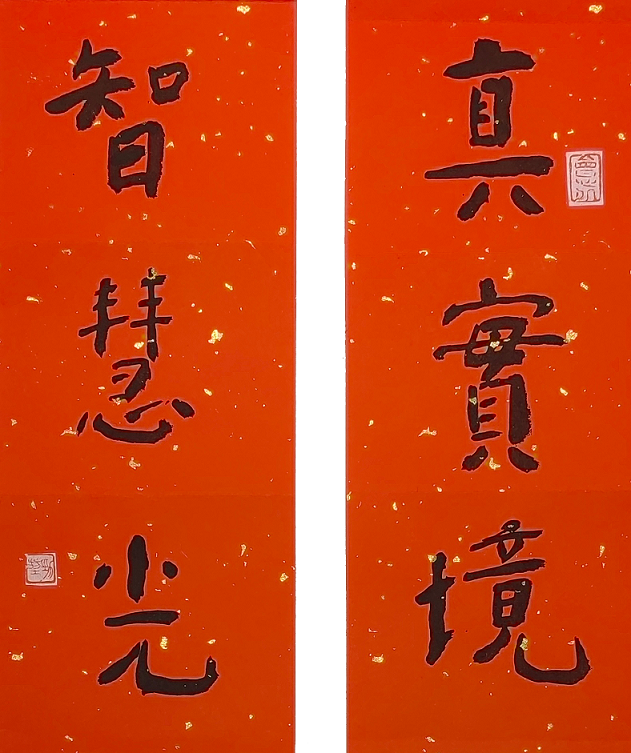 真實境
智慧光